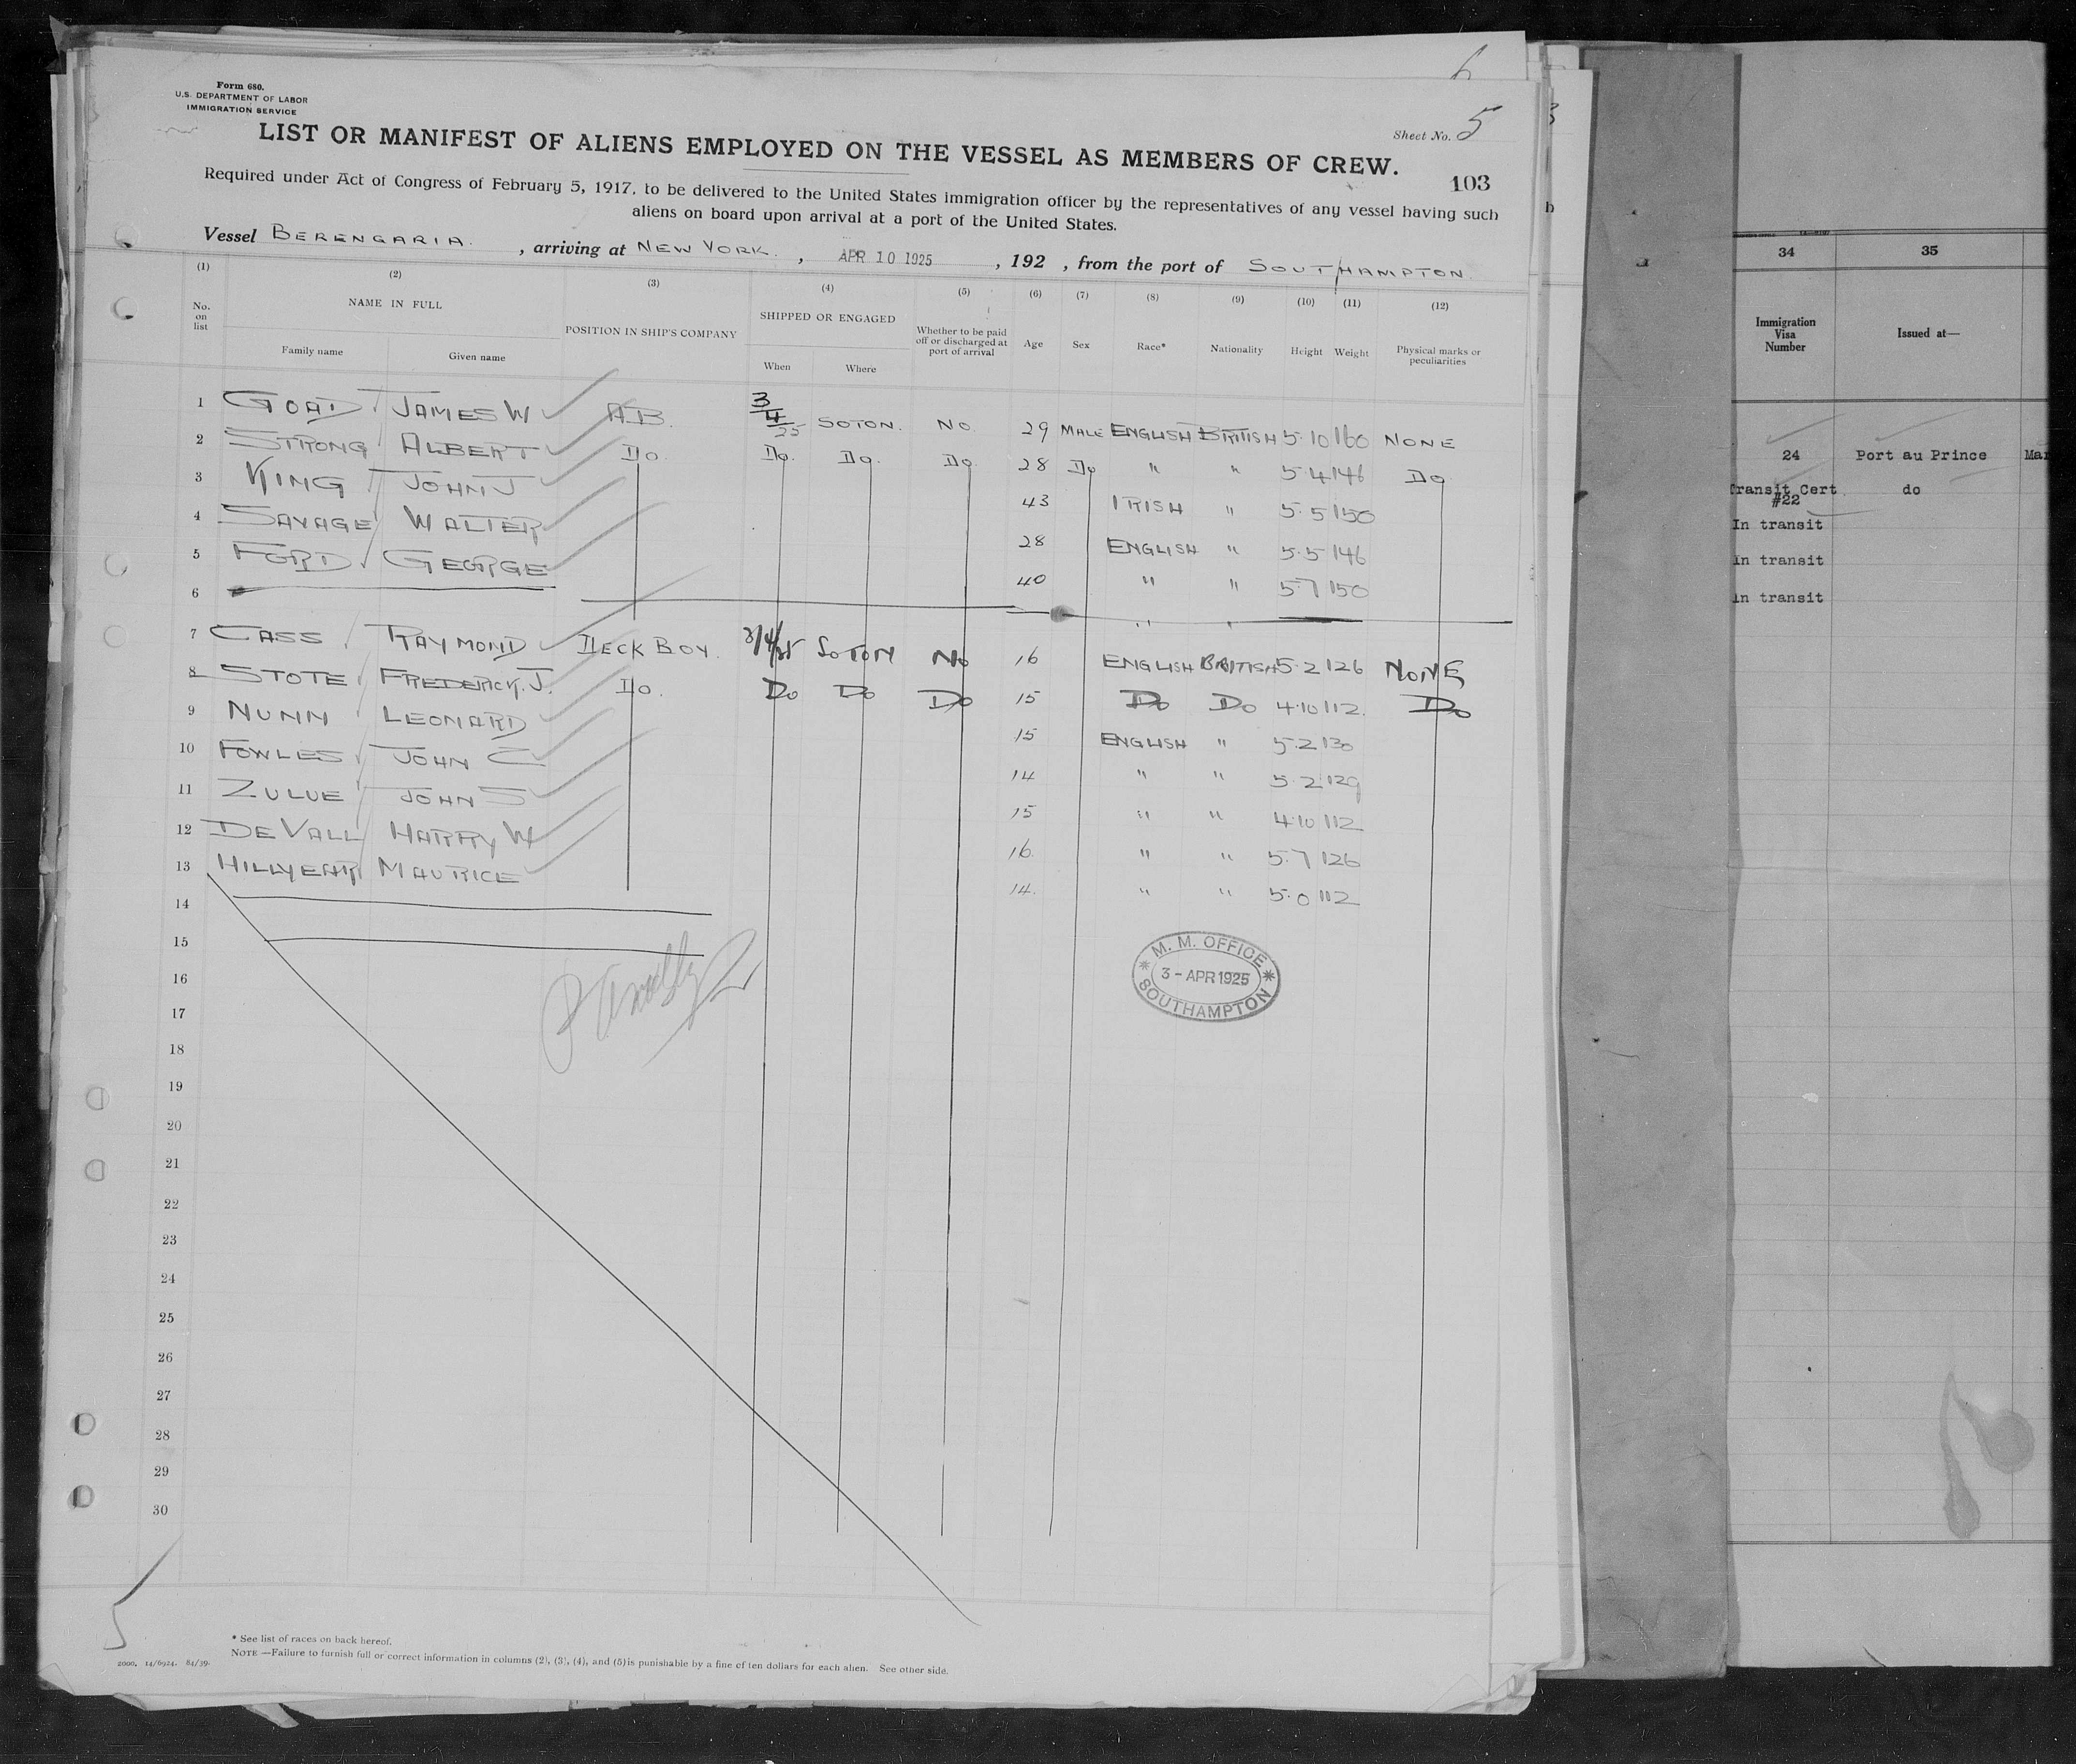 Form 680.
U.S. DEPARTMENT OF LABOR
IMMIGRATION SERVICE
Sheet No. 5
LIST OR MANIFEST OF ALIENS EMPLOYED ON THE VESSEL AS MEMBERS OF CREW.
103
Required under Act of Congress of February 5, 1917, to be delivered to the United States immigration officer by the representatives of any vessel having such
aliens on board upon arrival at a port of the United States.
Vessel BERENGARIA. , arriving at NEW YORK. , APR 10 1925 , 192 , from the port of SOUTHAMPTON.
(1) (2) (3) (4) (5) (6) (7) (8) (9) (10) (11) (12)
No. on list NAME IN FULL POSITION IN SHIP'S COMPANY SHIPPED OR ENGAGED Whether to be paid off or discharged at port of arrival Age Sex Race* Nationality Height Weight Physical marks or peculiarities
Family name Given name When Where
1 GOAD JAMES W A.B. 3/4/25 SOTON. NO. 29 MALE ENGLISH BRITISH 5.10 160 NONE
2 STRONG ALBERT Do. Do. Do. Do 28 Do " " 5.4 146 Do
3 KING JOHN J 43 IRISH " 5.5 150
4 SAVAGE WALTER 28 ENGLISH " 5.5 146
5 FORD GEORGE 40 " " 5.7 150
6 " "
7 CASS RAYMOND DECK BOY. 3/4/25 SOTON NO 16 ENGLISH BRITISH 5.2 126 NONE
8 STOTE FREDERICK. J. Do. Do Do Do 15 Do Do 4.10 112. Do
9 NUNN LEONARD 15 ENGLISH " 5.2 130
10 FOWLES JOHN C 14 " " 5.2 129
11 ZULUE JOHN S 15 " " 4.10 112
12 DE VALL HARRY W 16. " " 5.7 126
13 HILLYEAR MAURICE 14. " " 5.0 112
14
15
16
17
18
19
20
21
22
23
24
25
26
27
28
29
30
M. M. OFFICE
3 - APR 1925
SOUTHAMPTON
* See list of races on back hereof.
NOTE —Failure to furnish full or correct information in columns (2), (3), (4), and (5) is punishable by a fine of ten dollars for each alien. See other side.
2000. 14/6924. 84/39.
5
34 35
Immigration Visa Number Issued at—
24 Port au Prince
Transit Cert #22 do
In transit
In transit
In transit